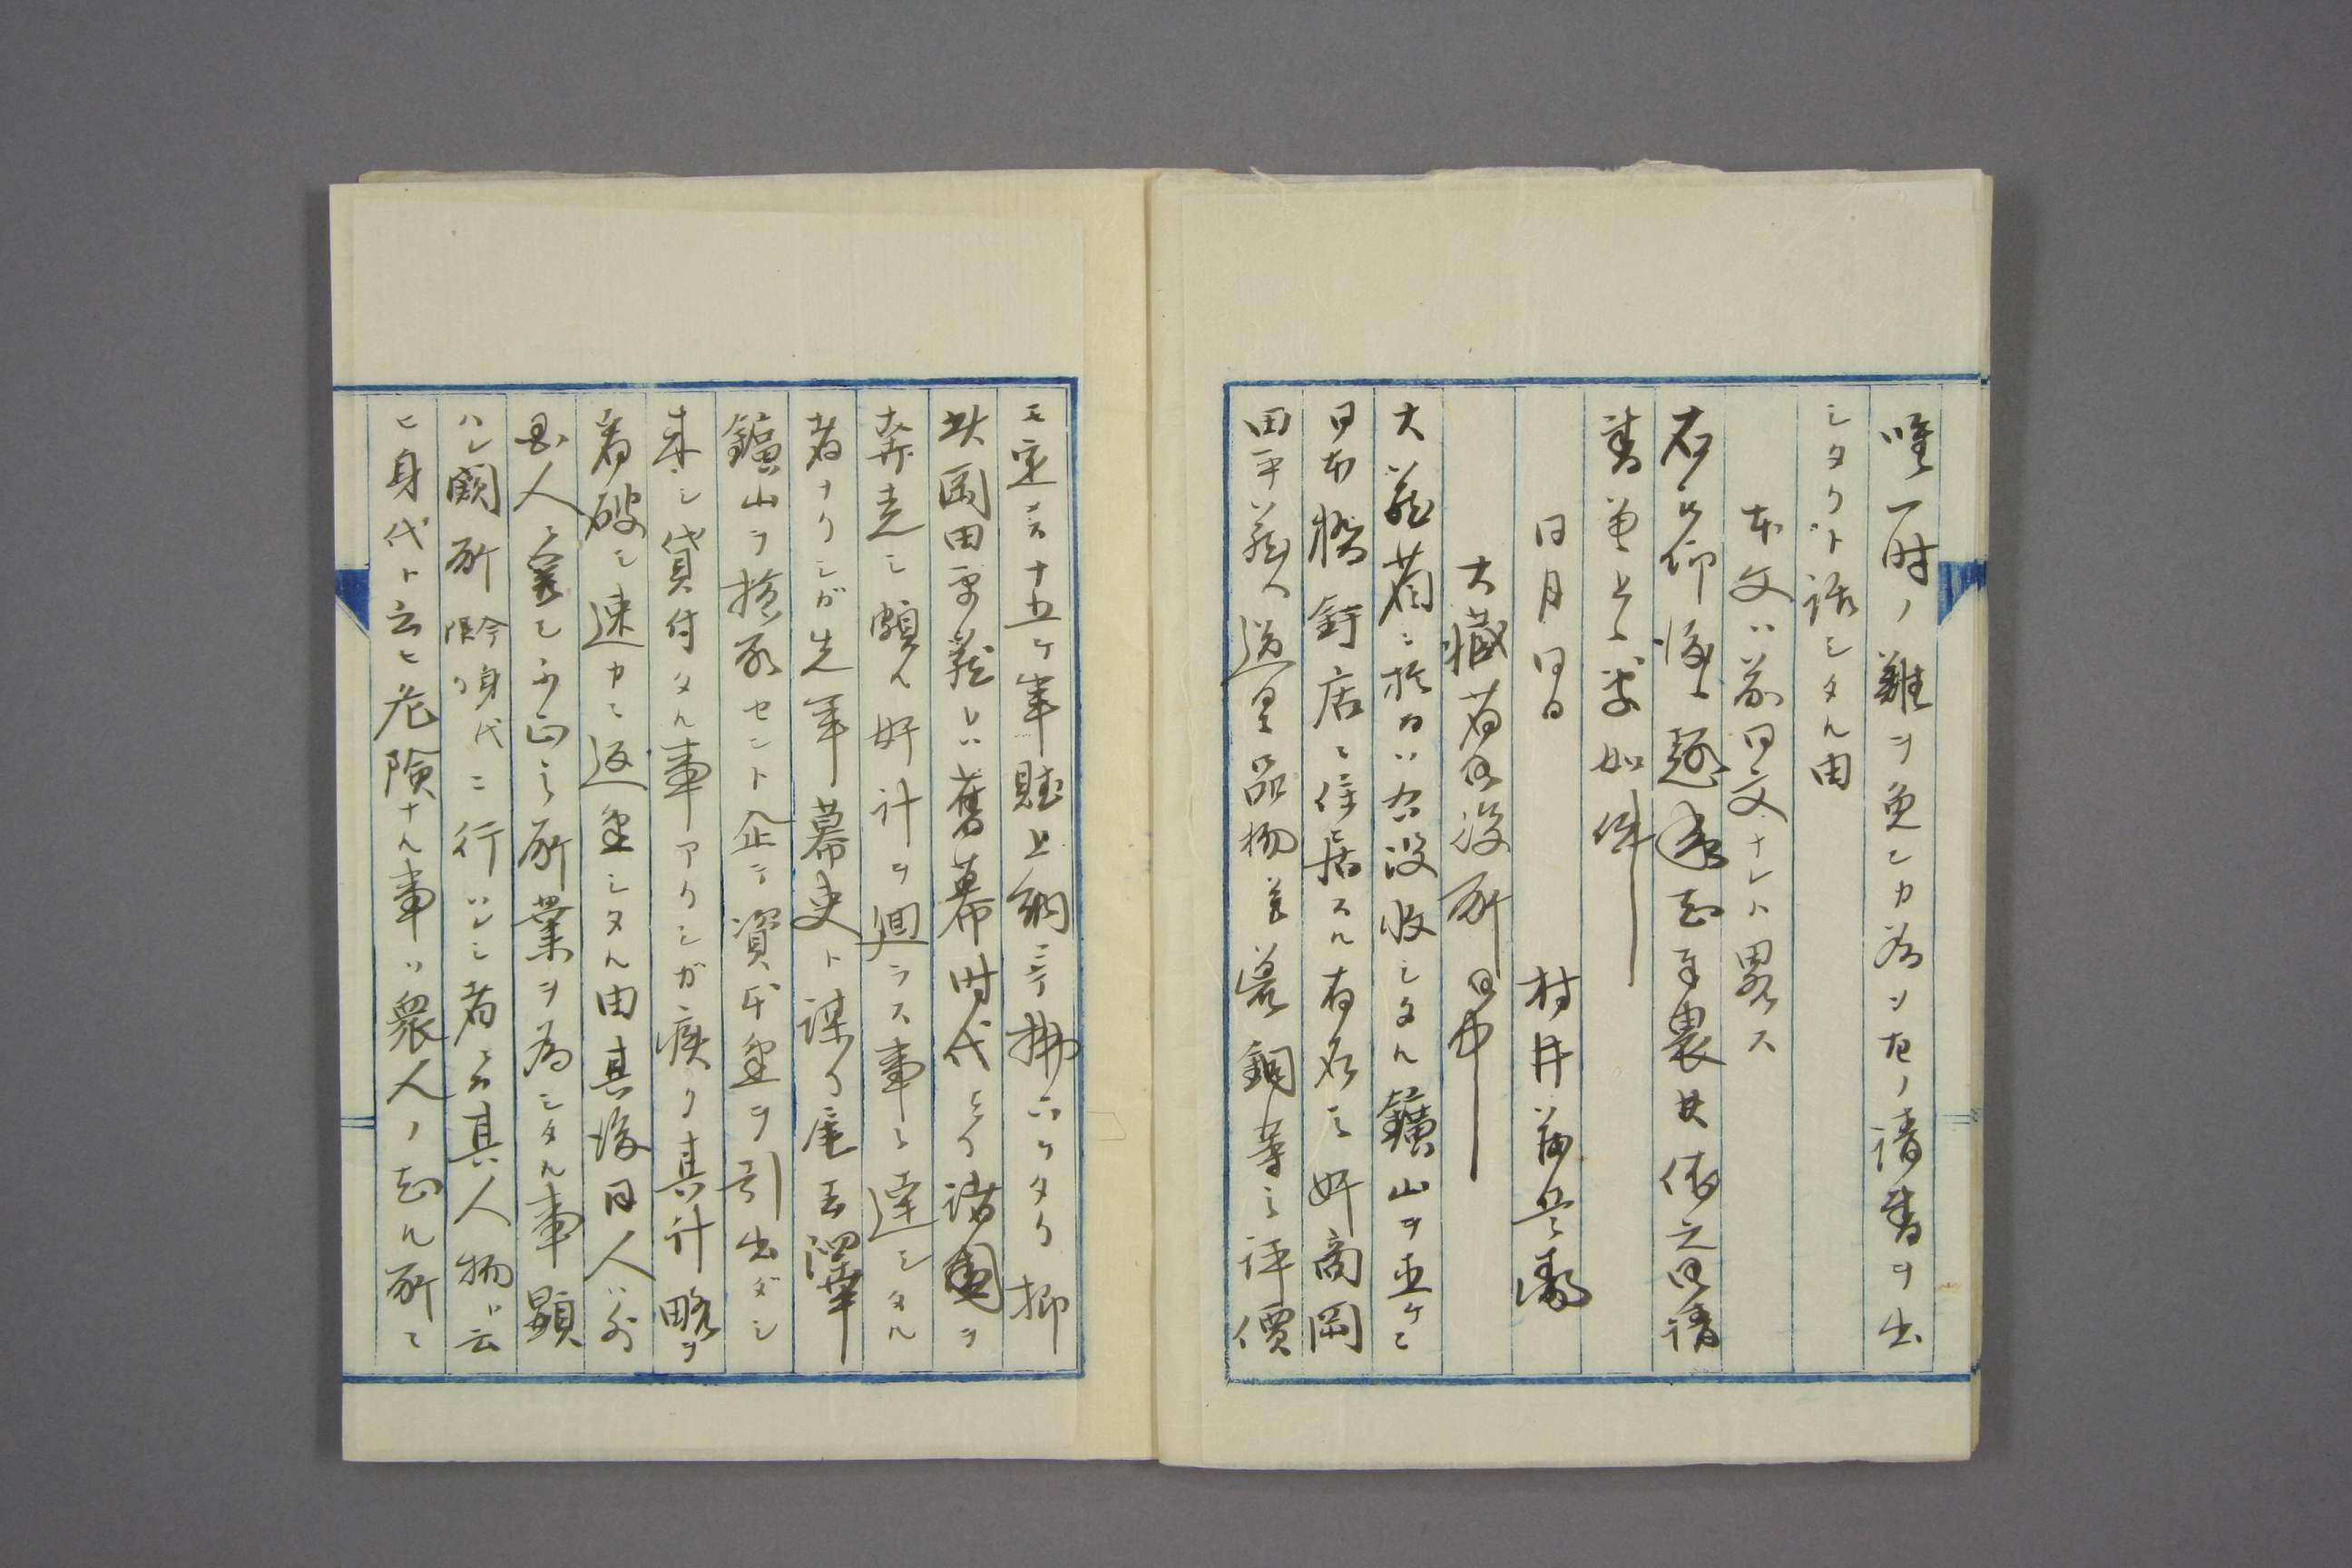 唯一時ノ難ヲ免レカ為ソ左ノ請書ヲ出
シタリト話シタル由
本文ハ前同文ナレハ略ス
右被仰渡之趣承知奉畏候依之御請
書奉差上候如件
同月同日
村井茂兵衛
大蔵省御役所御中
大蔵省ニ於ハ右没収シタル鑛山ヲ直ケニ
日本橋釘店ニ住居スル有名ノ奸商岡
田平蔵ヘ道具品物并荒銅等ノ評價
モ定メ十五ケ年賦上納ニテ拂下ケタリ抑
此岡田平蔵ハ舊幕時代ヨリ諸国ヲ
奔走シ頗ル奸計ヲ廻ラス事ニ達シタル
者ナリシガ先年幕吏ト謀リ尾去澤
鑛山ヲ横取セント企テ資本金ヲ引出ダシ
来シ貸付タル事アリシガ疾ク其計略ヲ
看破シ速カニ返金シタル由其後同人ハ外
国人ニ密シ不正之所業ヲ為シタル事顕
ハレ闕所身代限リニ行ハレシ者ニテ其人物ト云
ヒ身代ト云ヒ危険ナル事ハ衆人ノ知ル所ニ